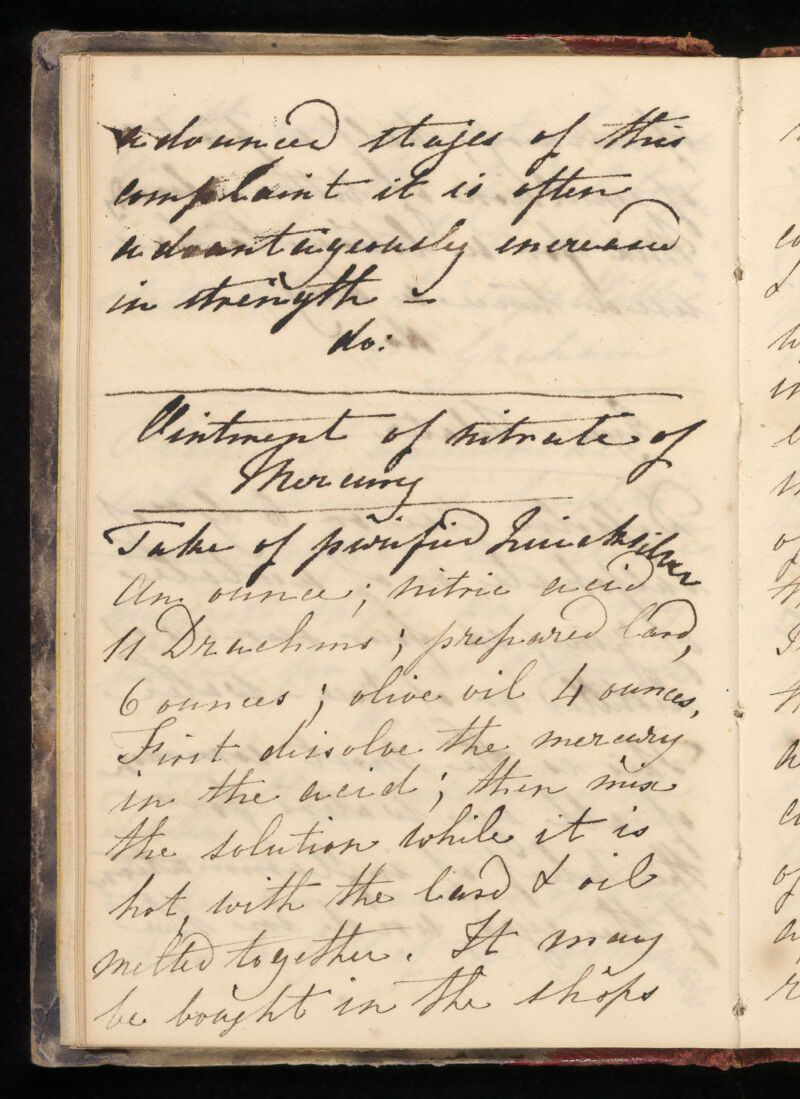 advanced stages of this
complaint it is often
advantageously increased
in strength –
do:
Ointment of nitrate of
Mercury
Take of purified Quicksilver
An ounce; nitric acid
11 Drachms; prepared Lard,
6 ounces; olive oil 4 ounces,
First dissolve the mercury
in the acid; then mix
the solution while it is
hot, with the lard & oil
melted together. It may
be bought in the shops